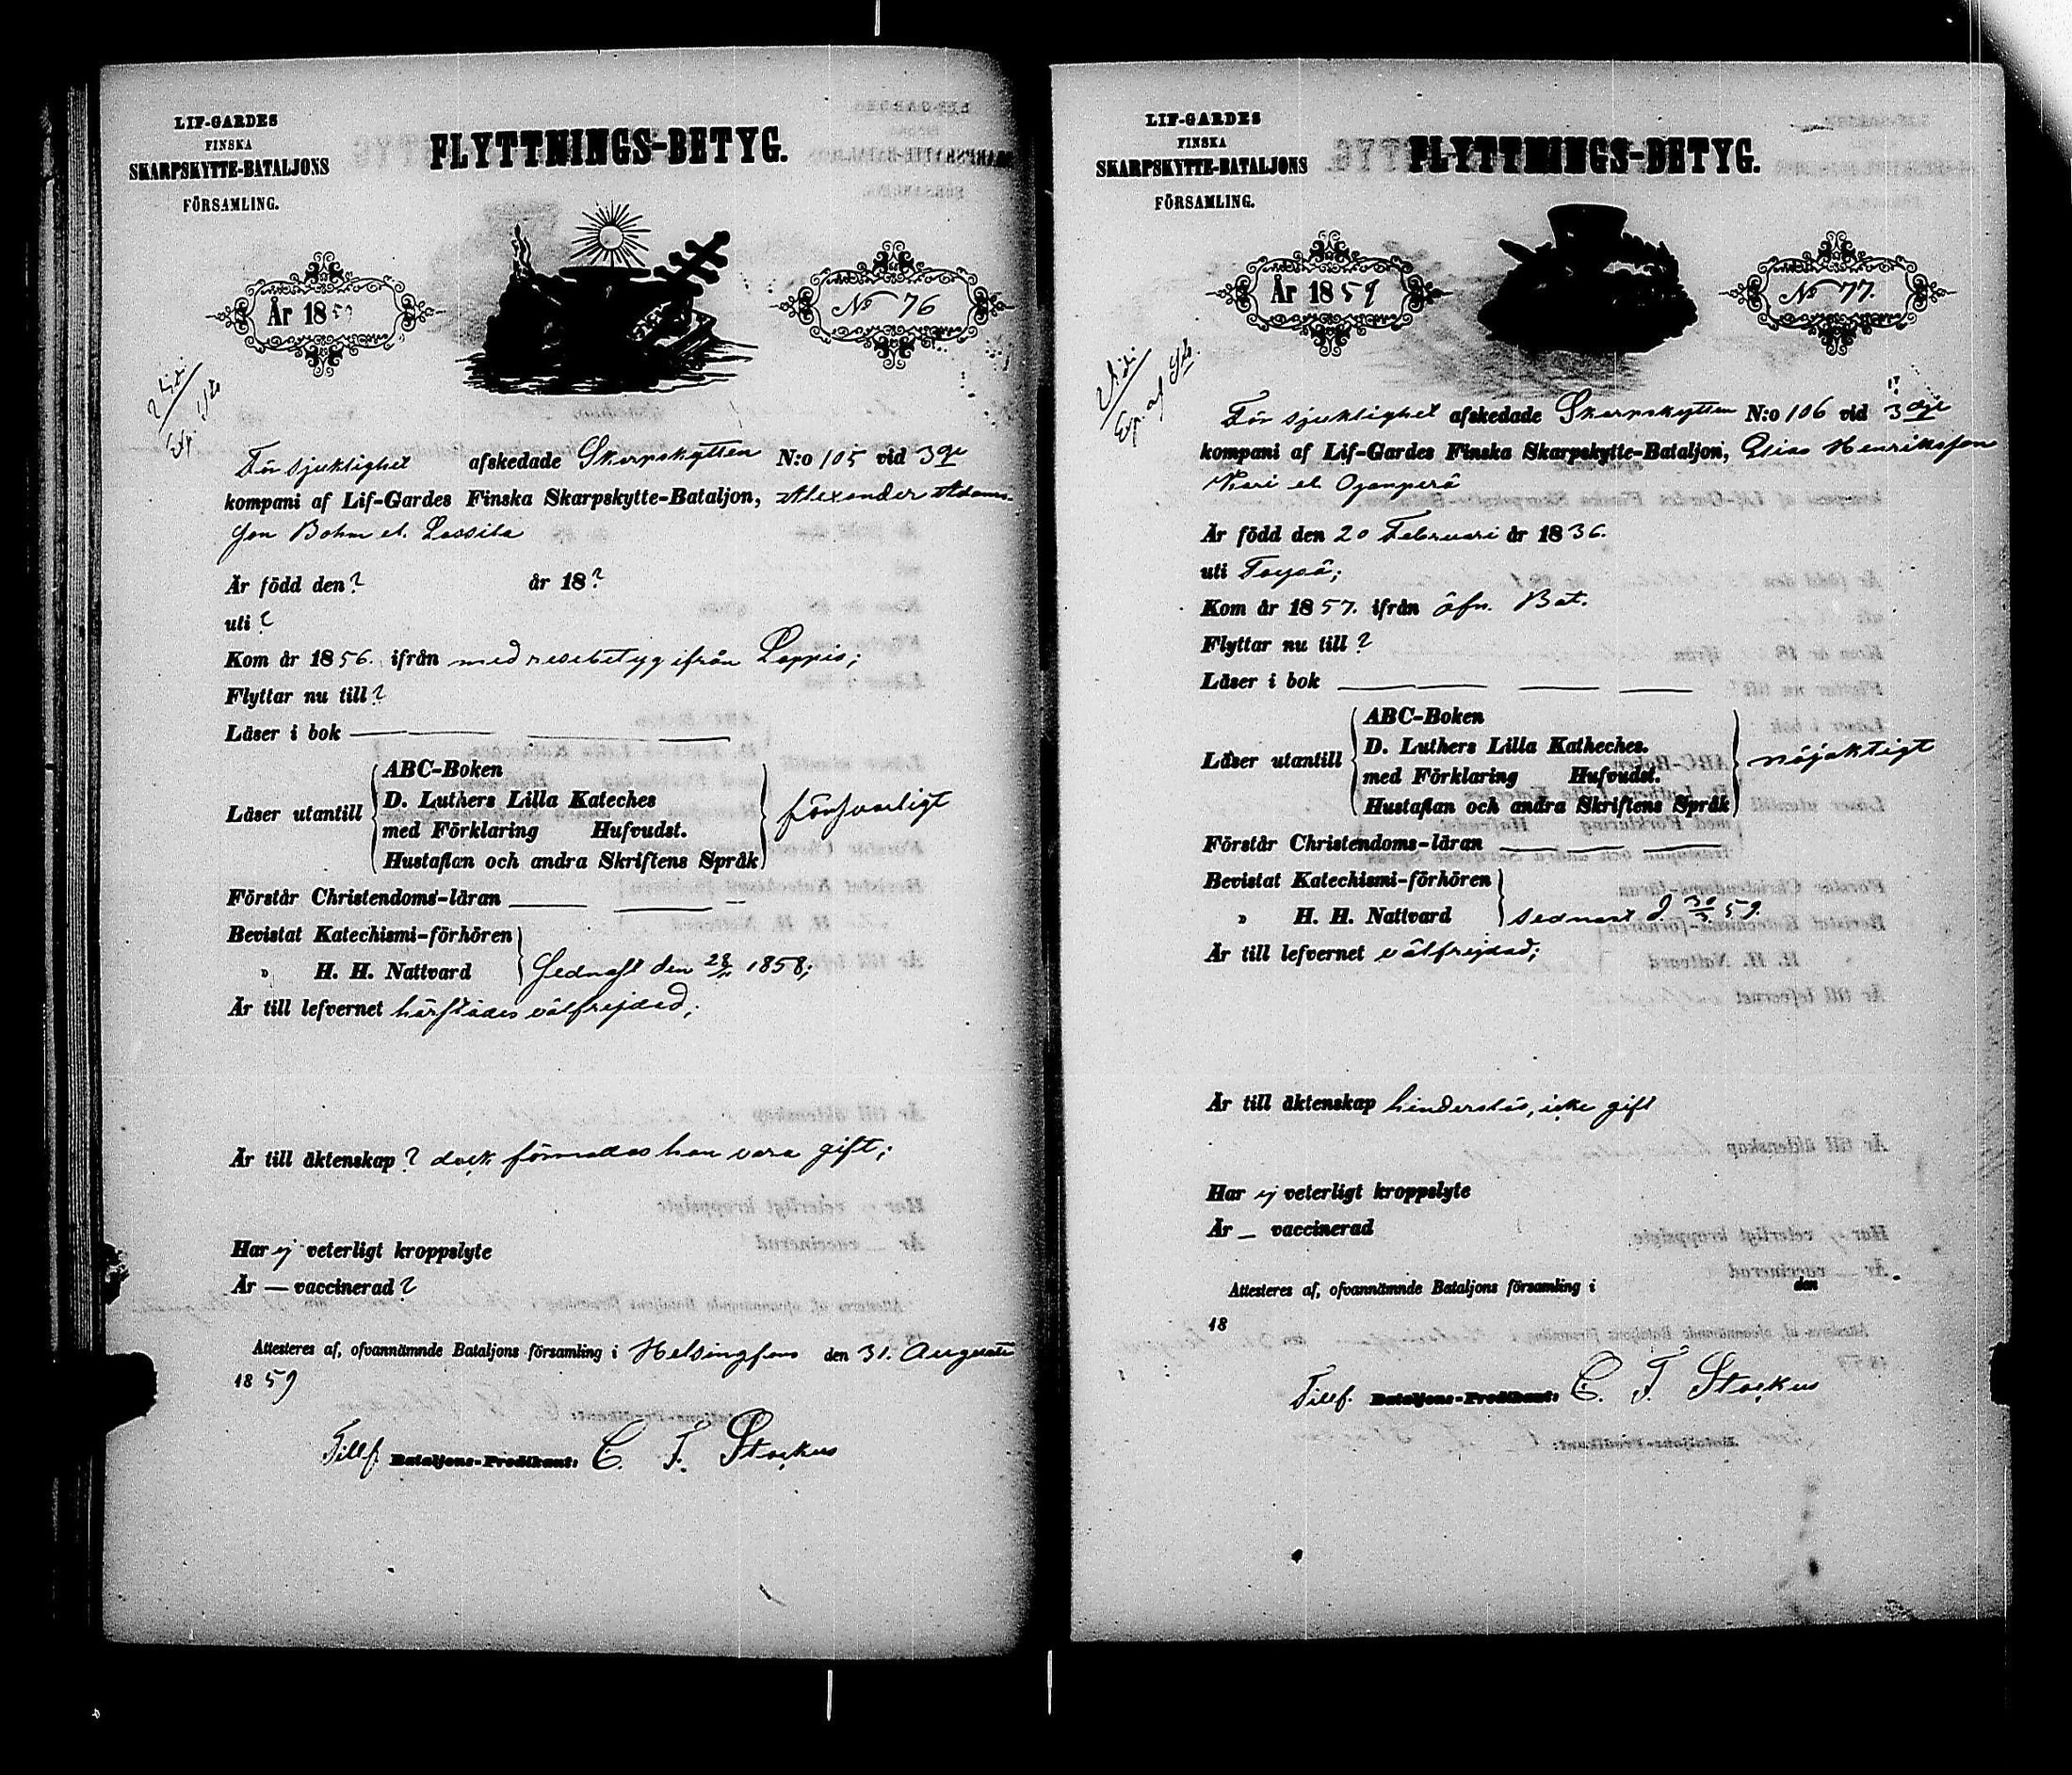 LIF-GARDES
FINSKA
SKARPSKYTTE-BATALJONS
FÖRSAMLING.
FLYTTNINGS-BETYG.
År 1859
No 76
För sjuklighet afskedade Skarpskytten N:o 105 vid 3dje
kompani af Lif-Gardes Finska Skarpskytte-Bataljon, Alexander Adams-
son Bohm el. Lassila
Är född den ? år 18?
uti ?
Kom år 1856. ifrån med resebetyg ifrån Loppis;
Flyttar nu till ?
Läser i bok
Läser utantill
ABC-Boken
D. Luthers Lilla Kateches
med Förklaring Hufvudst.
Hustaflan och andra Skriftens Språk
försvarligt
Förstår Christendoms-läran
Bevistat Katechismi-förhören
» H. H. Nattvard
sednast den 28/11 1858;
Är till lefvernet härstädes välfrejdad;
Är till äktenskap ? dock förmodas han vara gift;
Har ej veterligt kroppslyte
Är — vaccinerad ?
Attesteres af, ofvannämnde Bataljons församling i Helsingfors den 31. Augusti
1859
Tillf. Bataljons-Predikant: C. F. Stockus
LIF-GARDES
FINSKA
SKARPSKYTTE-BATALJONS
FÖRSAMLING.
FLYTTNINGS-BETYG.
År 1859
No 77.
För sjuklighet afskedade Skarpskytten N:o 106 vid 3dje
kompani af Lif-Gardes Finska Skarpskytte-Bataljon, Elias Henriksson
Kari el. Ojanperä
Är född den 20 Februari år 1836.
uti Töysä;
Kom år 1857. ifrån öfn. Bat.
Flyttar nu till ?
Läser i bok
Läser utantill
ABC-Boken
D. Luthers Lilla Katheches.
med Förklaring Hufvudst.
Hustaflan och andra Skriftens Språk
nöjaktigt
Förstår Christendoms-läran
Bevistat Katechismi-förhören
» H. H. Nattvard
sednast d. 30/3 59.
Är till lefvernet välfrejdad;
Är till äktenskap hinderslös, icke gift
Har ej veterligt kroppslyte
Är — vaccinerad
Attesteres af, ofvannämnde Bataljons församling i den
18
Tillf. Bataljons-Predikant: C. F. Stockus